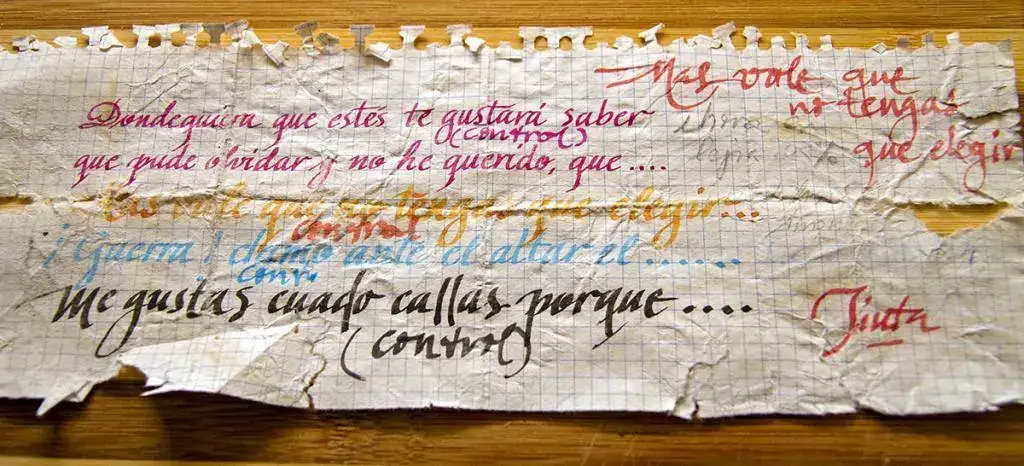 Mas vale que
no tengas
que elegir
Dondequiera que estés te gustará saber
(control)
que pude olvidar y no he querido, que ....
Mas vale que no tengas que elegir...
control
¡Guerra! clamo ante el altar el ......
Me gustas cuado callas porque ....
(control)
Tinta